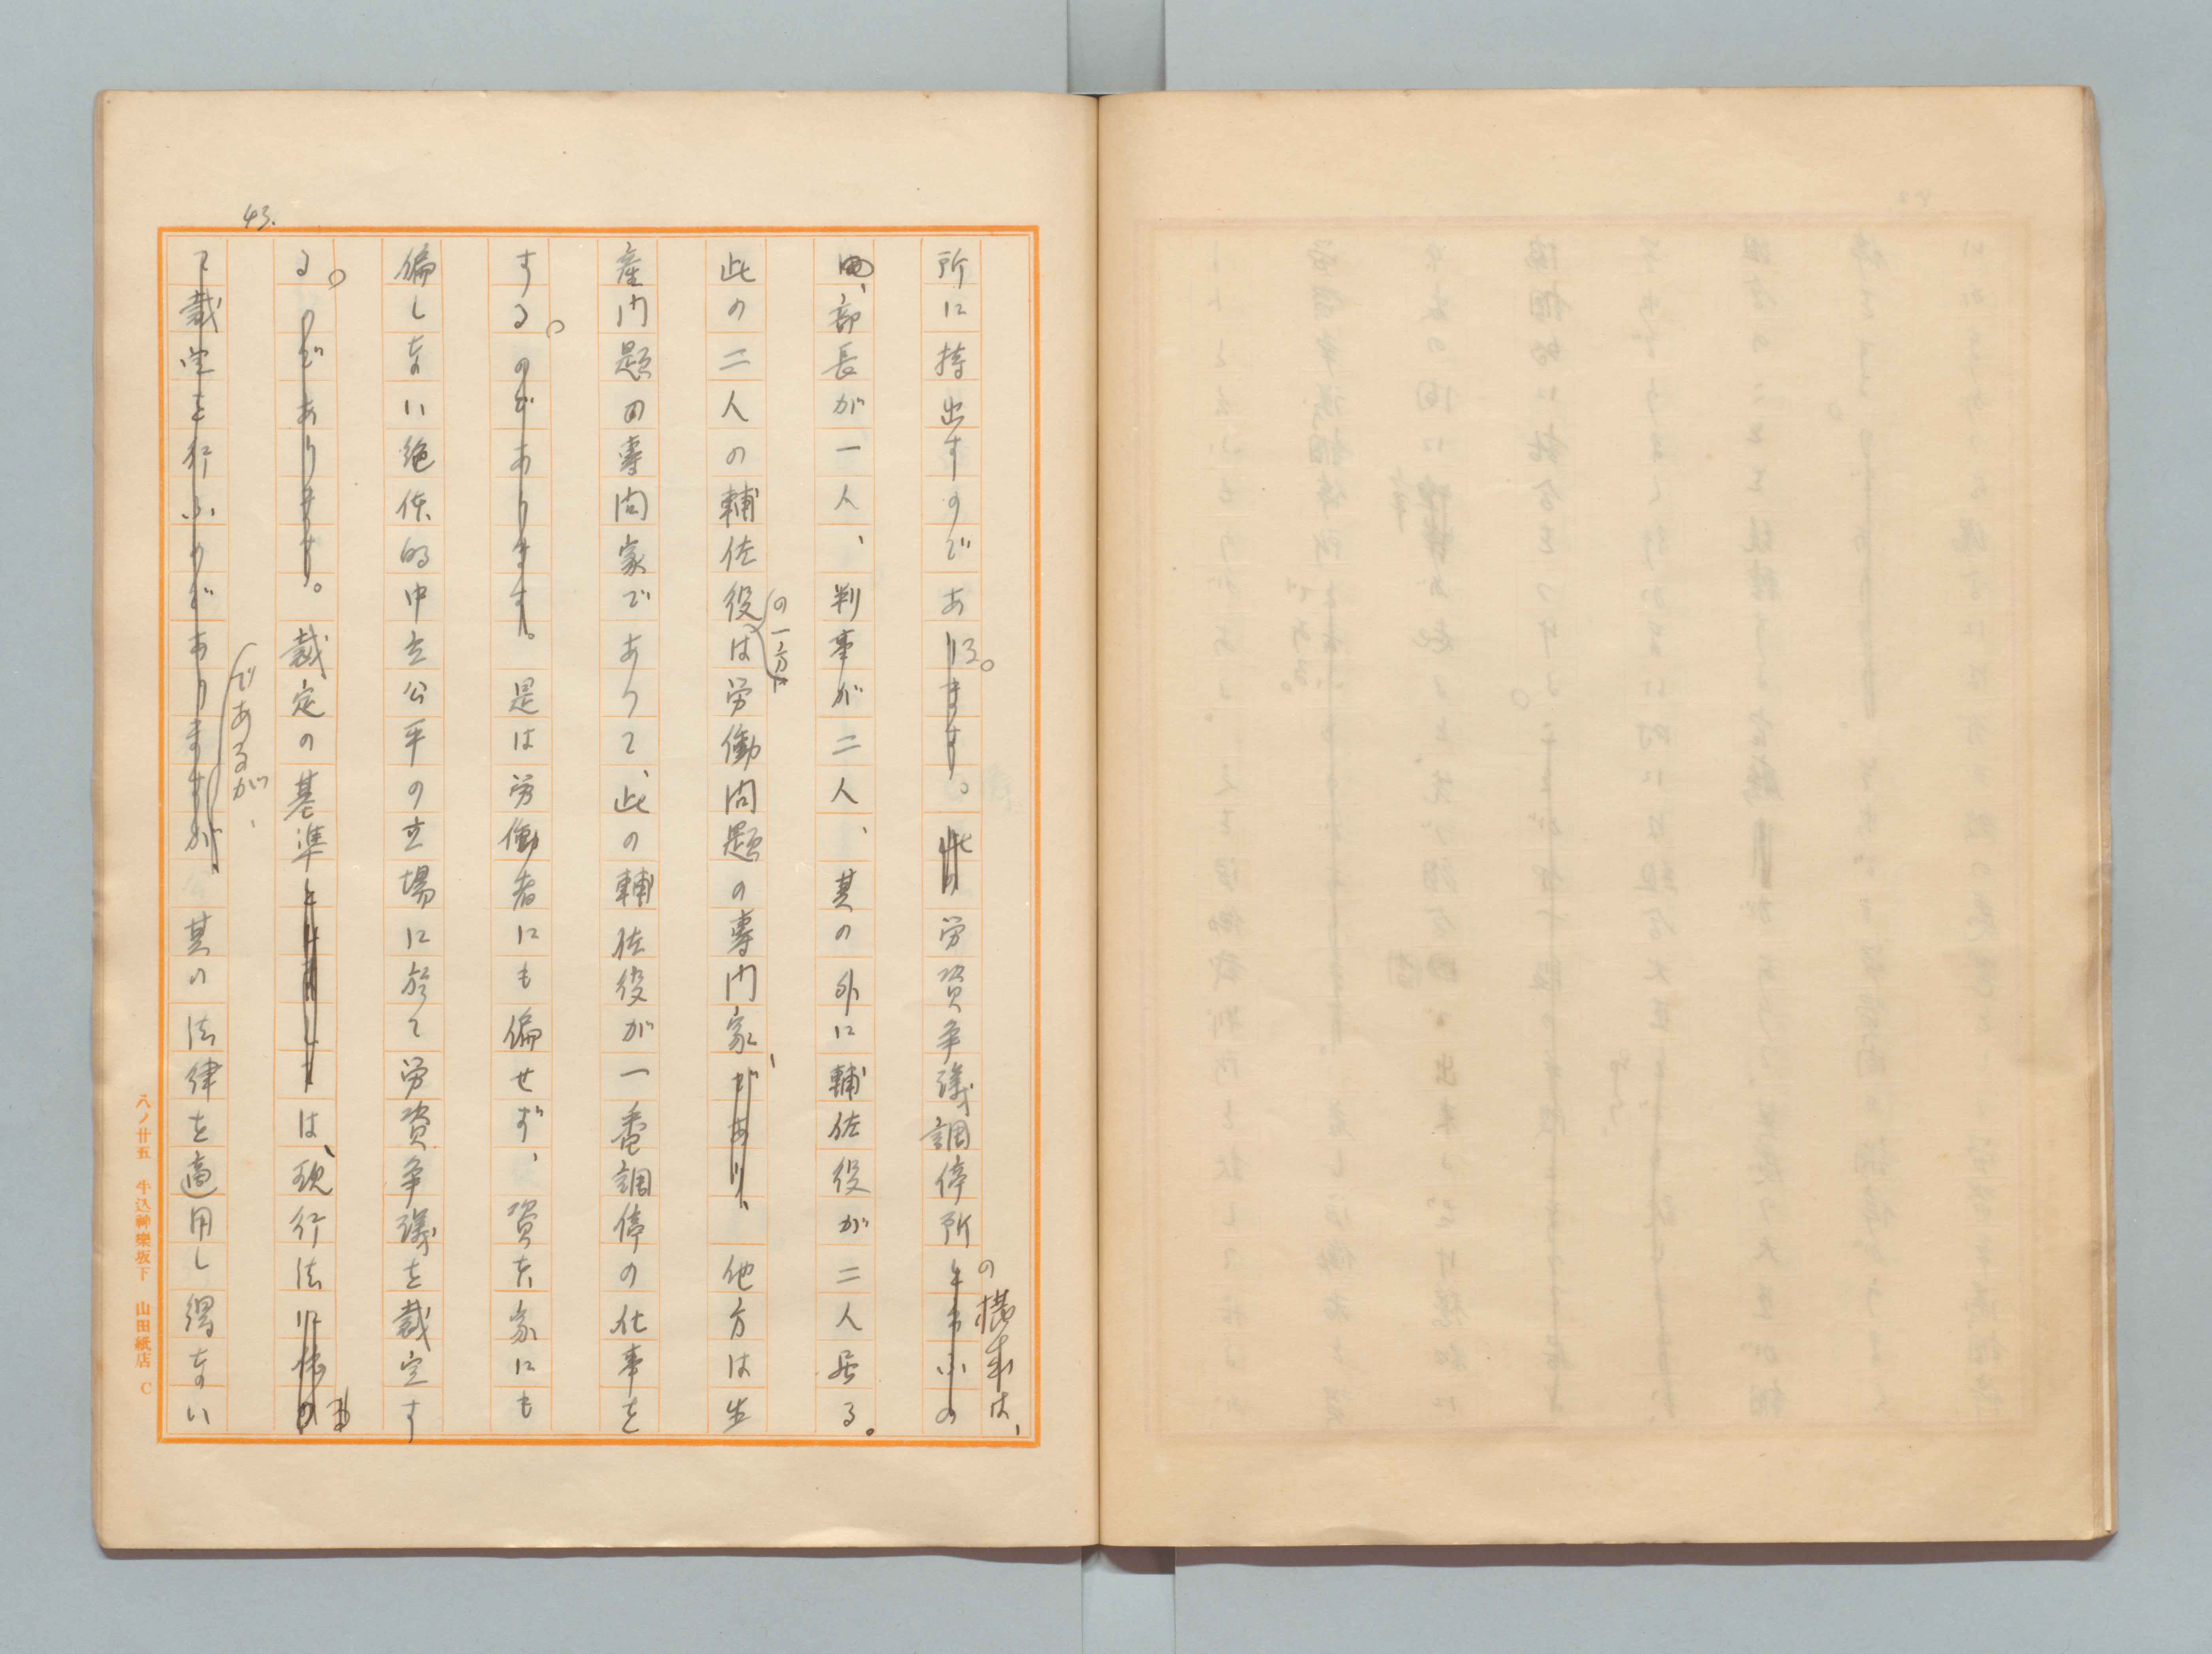 43.
所に持出すのであります。る。此の労資争議調停所と云ふのの構成は、
は、部長が一人、判事が二人、其の外に輔佐役が二人居る。
此の二人の輔佐役の一方は労働問題の専門家であり、他方は生
産内題の専問家であつて、此の輔佐役が一番調停の仕事を
する。のであります。是は労働者にも偏せず、資本家にも
偏しない絶体的中立公平の立場に於て労資争議を裁定す
る。のであります。裁定の基準は、現行法に依り
て裁定を行ふのでありますが、であるが、其の法律を適用し得ない
八ノ廿五 牛込神樂坂下 山田紙店 C